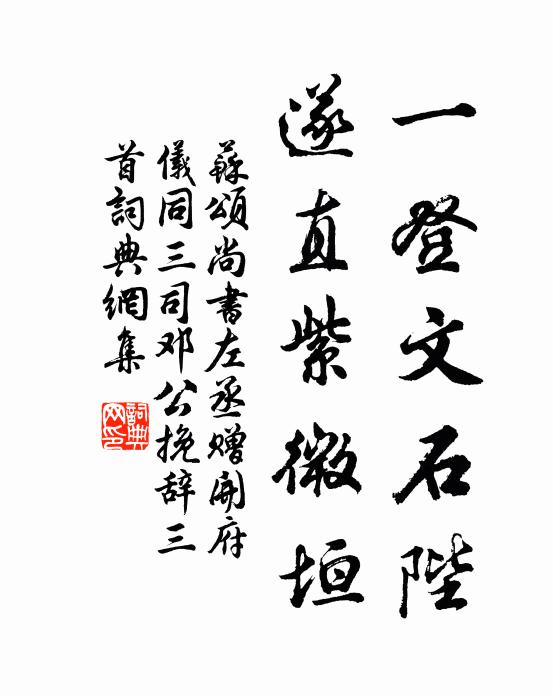 一登文石陛
遂直紫微垣
蘇頌尚書左丞赠開府
儀同三司邓公挽辞三
首詞典網集
詞典
网印